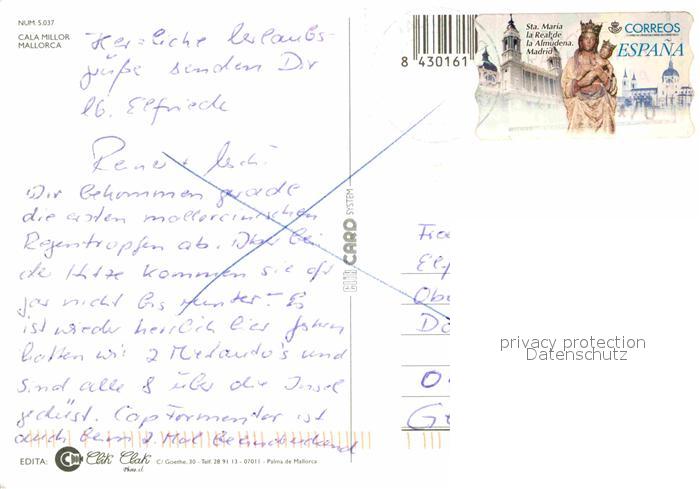 NUM. 5.037
CALA MILLOR
MALLORCA
Herzliche Urlaubs-
grüße senden Dir
lb. Elfriede
Wir bekommen gerade
die ersten mallorcinischen
Regentropfen ab. Aber bei
der Hitze kommen sie oft
gar nicht bis runter. Es
ist wieder herrlich hier. Gestern
hatten wir 2 Mietauto's und
sind alle 8 über die Insel
gedüst. Cap Formentor ist
auch beim 2. Mal beeindruckend
EDITA: Clik Clak
C/ Goethe, 30 - Telf. 28 91 13 - 07011 - Palma de Mallorca
CARD SYSTEM
8 430161
Sta. María
la Real de
la Almudena.
Madrid
CORREOS
ESPAÑA
privacy protection
Datenschutz